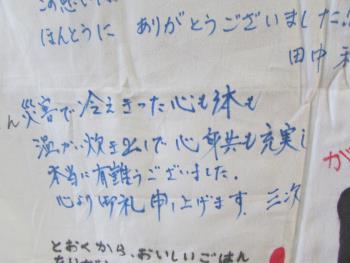 ほんとうに ありがとうございました!
田中
災害で冷えきった心も体も
温かい炊き出しで心部共も充実し
本当に有難うございました。
心より御礼申し上げます. 三次
とおくから、おいしいごはん